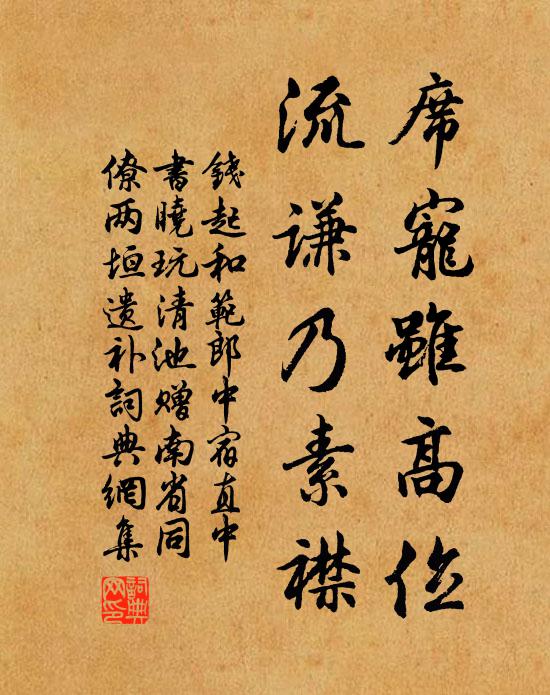 席寵雖高位
流謙乃素襟
錢起和範郎中宿直中
書曉玩清池贈南省同
僚两垣遺补詞典網集
詞典網印